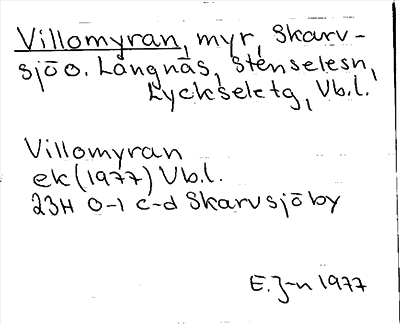 Villomyran, myr, Skarv-
sjö o. Långnäs, Stenselesn,
Lyckseletg, Vb.l.
Villomyran
ek (1977) Vb.l.
23H 0-1 c-d Skarvsjöby
E. J-n 1977